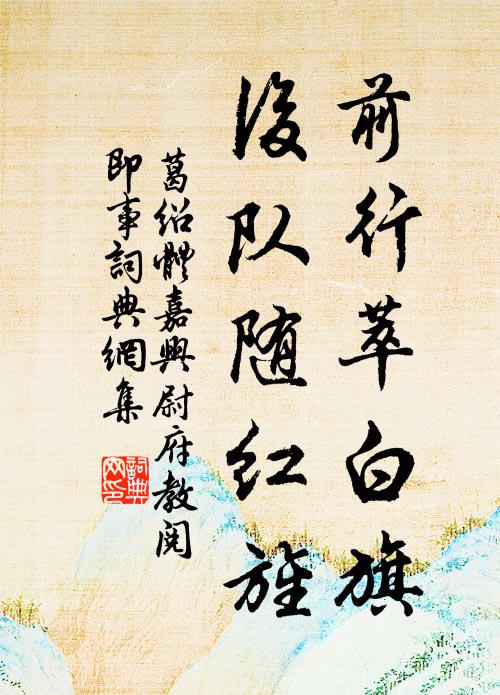 前行萃白旗
後队随红旌
葛绍體嘉興尉府教閱
即事詞典網集
詞典網印